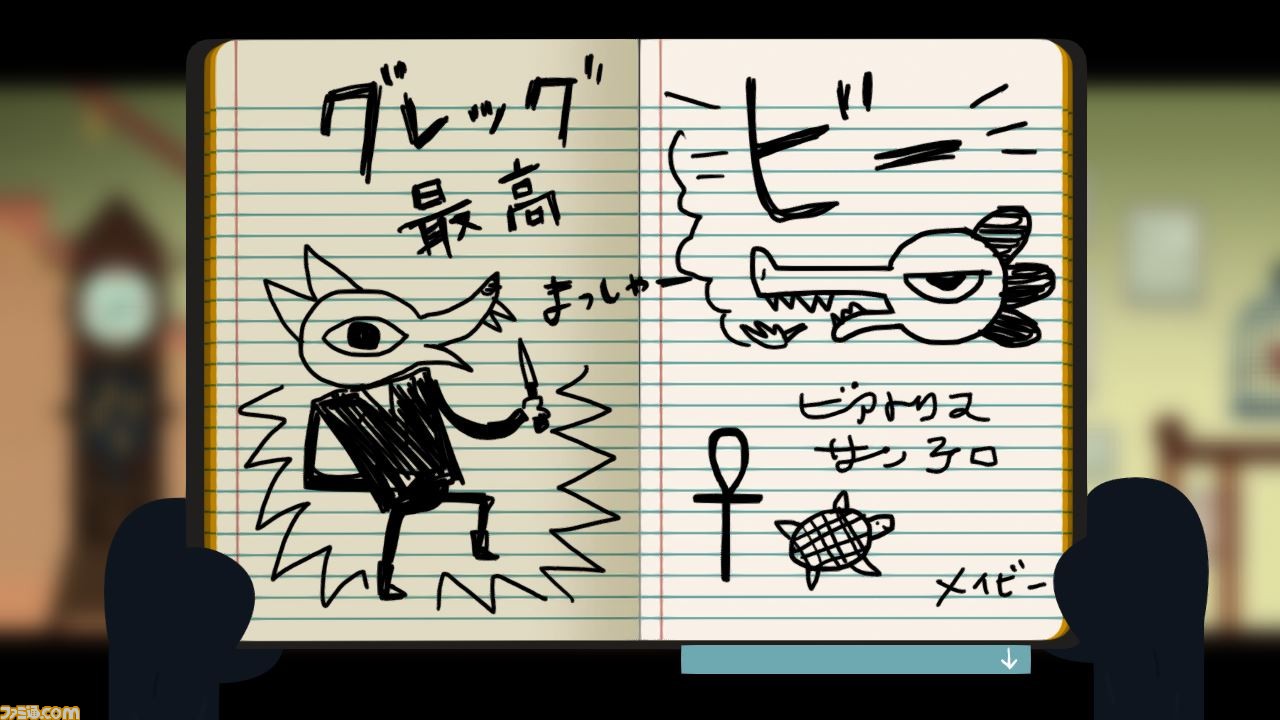 グレッグ
最高
まっしゃー
ビー
ビアトリス
サンテロ
メイビー
ファミ通.com